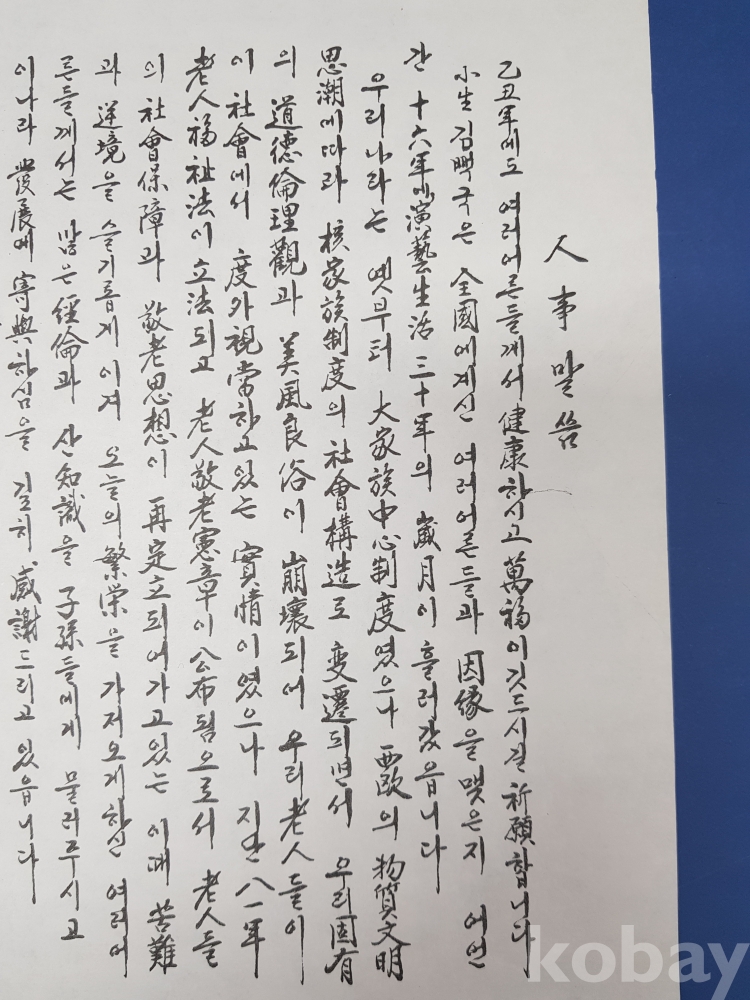 人事말씀
乙丑年에도 여러어른들께서 健康하시고 萬福이깃드시길 祈願합니다
小生 김뻑국은 全國에계신 여러어른들과 因緣을 맺은지 어언
간 十六年 演藝生活 三十年의 歲月이 흘러갔읍니다
우리나라는 옛부터 大家族中心制度였으나 西歐의 物質文明
思潮에따라 核家族制度의 社會構造로 变遷되면서 우리固有
의 道德倫理觀과 美風良俗이 崩壞되어 우리老人들이
이 社會에서 度外視當하고있는 實情이였으나 지난 八一年
老人福祉法이 立法되고 老人敬老憲章이 公布됨으로서 老人들
의 社會保障과 敬老思想이 再定立되어가고있는 이때 苦難
과 逆境을 슬기롭게 이겨 오늘의 繁栄을 가져오게하신 여러어
른들께서는 많은 經倫과 산知識을 子孫들에게 물려주시고
이나라 發展에 寄與하심을 깊히 感謝드리고 있읍니다
kobay